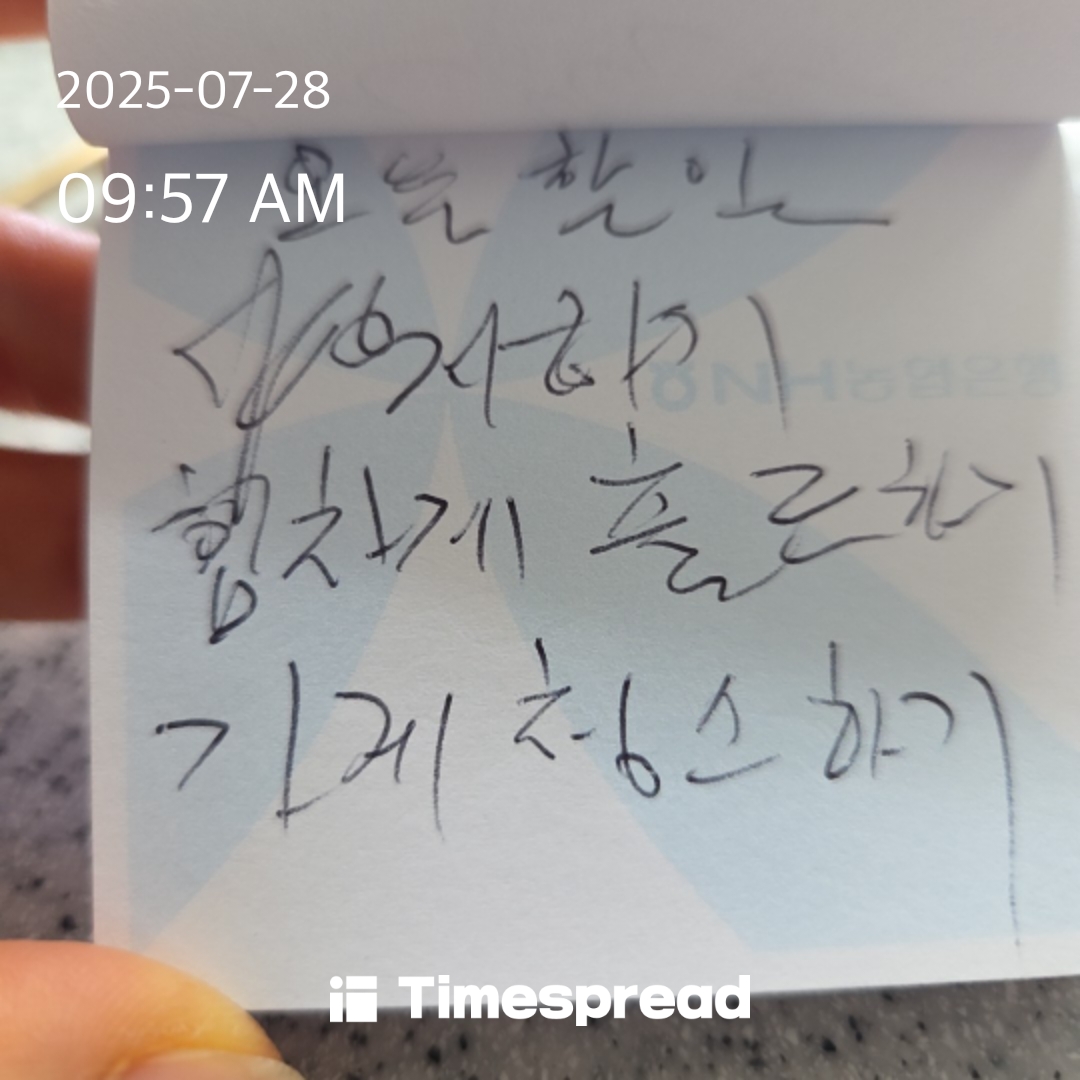 2025-07-28
09:57 AM
오늘 할 일
하기
힘차게 출근하기
NH농협은행
가게 청소하기
Timespread